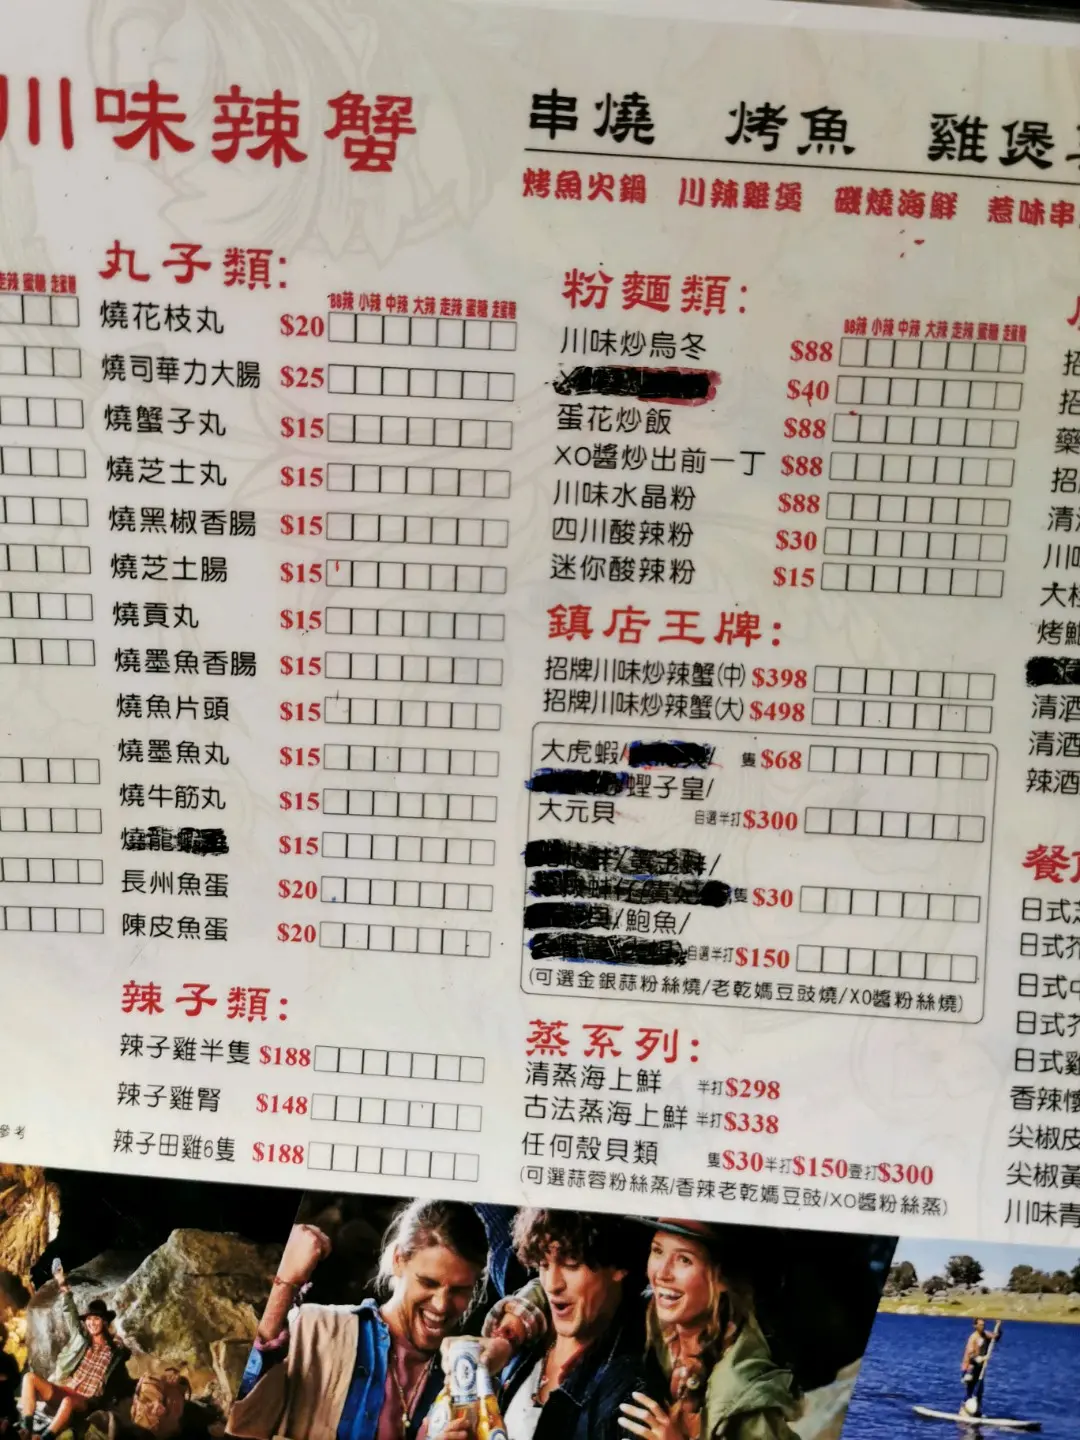 川味辣蟹
串燒 烤魚 雞煲
烤魚火鍋 川辣雞煲 磯燒海鮮 惹味串
丸子類:
走辣 蜜糖 走蜜糖
BB辣 小辣 中辣 大辣 走辣 蜜糖 走蜜糖
燒花枝丸 $20
燒司華力大腸 $25
燒蟹子丸 $15
燒芝士丸 $15
燒黑椒香腸 $15
燒芝士腸 $15
燒貢丸 $15
燒墨魚香腸 $15
燒魚片頭 $15
燒墨魚丸 $15
燒牛筋丸 $15
燒龍 $15
長州魚蛋 $20
陳皮魚蛋 $20
辣子類:
辣子雞半隻 $188
辣子雞腎 $148
辣子田雞6隻 $188
參考
粉麵類:
BB辣 小辣 中辣 大辣 走辣 蜜糖 走蜜糖
川味炒烏冬 $88
$40
蛋花炒飯 $88
XO醬炒出前一丁 $88
川味水晶粉 $88
四川酸辣粉 $30
迷你酸辣粉 $15
鎮店王牌:
招牌川味炒辣蟹(中) $398
招牌川味炒辣蟹(大) $498
大虎蝦/ / 隻 $68
蟶子皇/
大元貝 自選半打$300
/黃金蚌/
隻 $30
/鮑魚/
自選半打$150
(可選金銀蒜粉絲燒/老乾媽豆豉燒/XO醬粉絲燒)
蒸系列:
清蒸海上鮮 半打$298
古法蒸海上鮮 半打$338
任何殼貝類 隻$30半打$150壹打$300
(可選蒜蓉粉絲蒸/香辣老乾媽豆豉/XO醬粉絲蒸)
招
招
藥
招
清酒
川味
大
烤
清酒
清酒
辣酒
餐
日式
日式芥
日式中
日式芥
日式雞
香辣
尖椒皮
尖椒黃
川味青